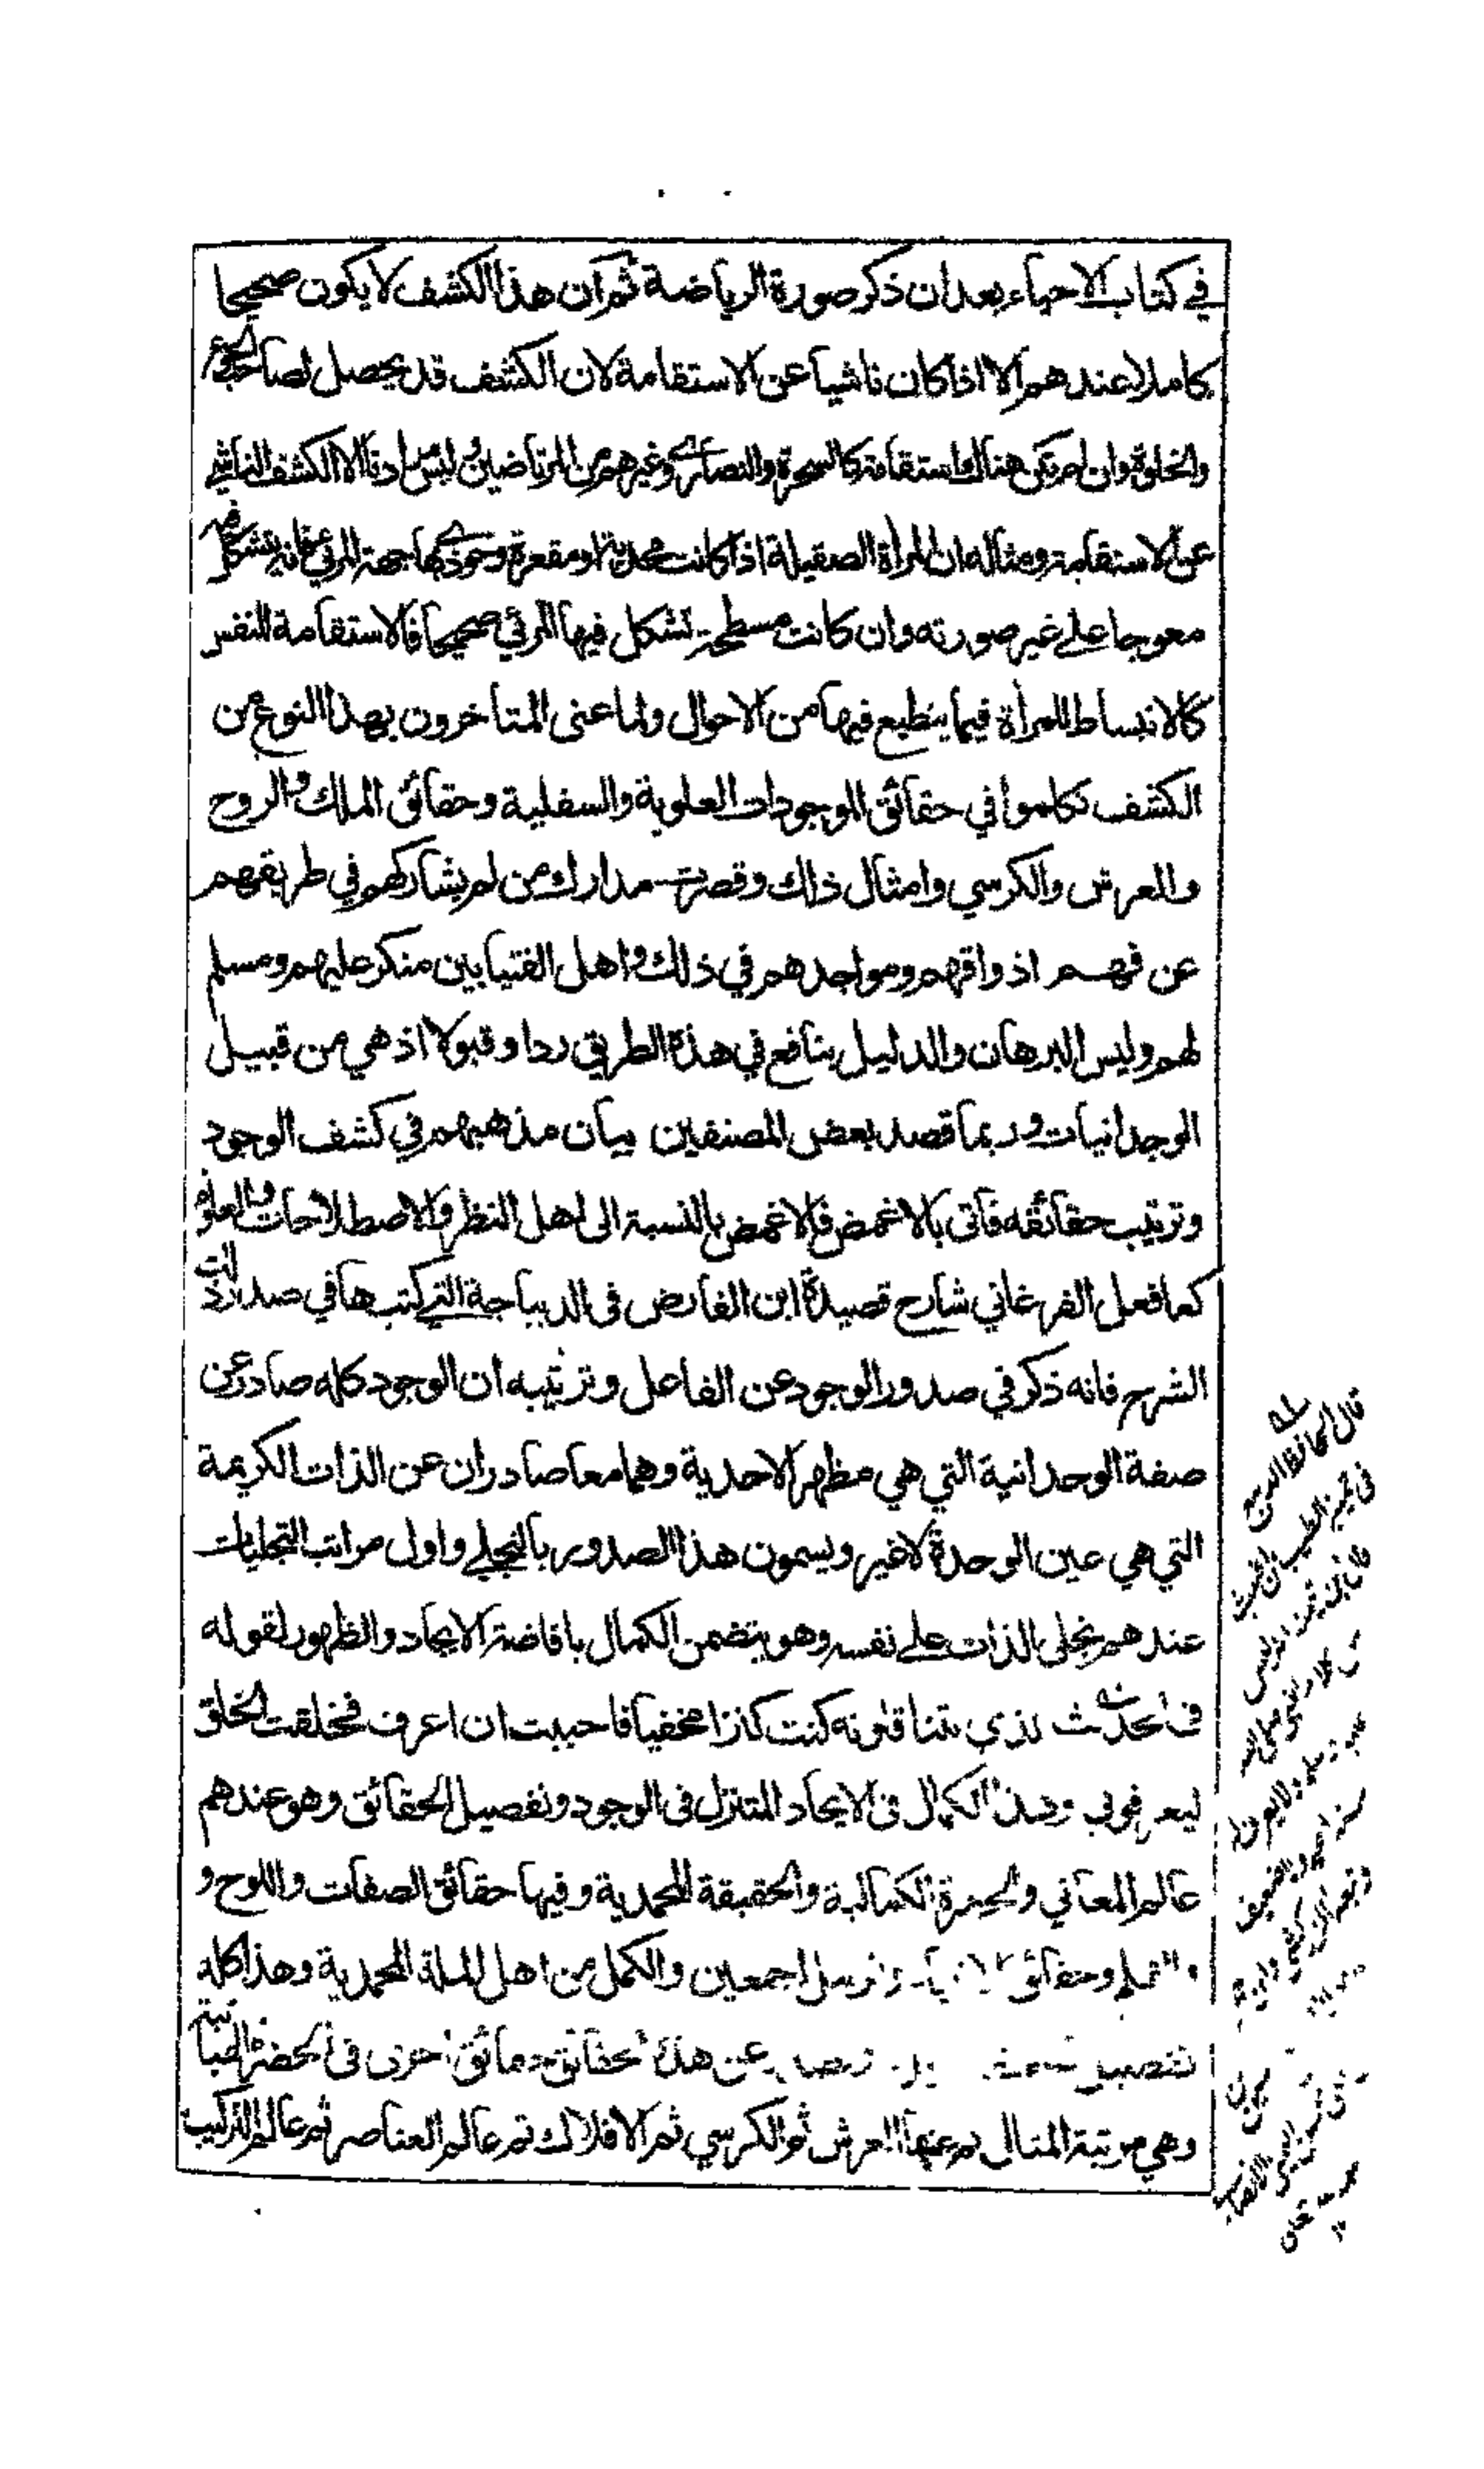 في كتاب الاحياء بعد ان ذكر صورة الرياضة ثم ان هذا الكشف لا يكون صحيحا
كاملا عندهم الا اذا كان ناشيا عن الاستقامة لان الكشف قد يحصل لصاحب الجوع
والخلوة وان لم يكن هناك استقامة كالسحرة والنصارى وغيرهم من المرتاضين وليس مرادنا الا الكشف الناشي
عن الاستقامة ومثاله ان المرأة الصقيلة اذا كانت محدبة او مقعرة وحوذي بها جهة المرئي فانه يتشكل فيه
معوجا على غير صورته وان كانت مسطحة تشكل فيها المرئي صحيحا فالاستقامة للنفس
كالانبساط للمرأة فيما ينطبع فيها من الاحوال ولما عنى المتأخرون بهذا النوع من
الكشف تكلموا في حقائق الموجودات العلوية والسفلية وحقائق الملك والروح
والعرش والكرسي وامثال ذلك وقصرت مدارك من لم يشاركهم في طريقهم
عن فهم اذواقهم ومواجدهم في ذلك واهل الفتيا بين منكر عليهم ومسلم
لهم وليس البرهان والدليل بنافع في هذه الطريق ردا وقبولا اذ هي من قبيل
الوجدانيات وربما قصد بعض المصنفين بيان مذهبهم في كشف الوجود
وترتيب حقائقه فأتى بالاغمض فالاغمض بالنسبة الى اهل النظر والاصطلاحات والعلوم
كما فعل الفرغاني شارح قصيدة ابن الفارض في الديباجة التي كتبها في صدر ذلك
الشرح فانه ذكر في صدور الوجود عن الفاعل وترتيبه ان الوجود كله صادر عن
صفة الوحدانية التي هي مظهر الاحدية وهما معا صادران عن الذات الكريمة
التي هي عين الوحدة لا غير ويسمون هذا الصدور بالتجلي واول مراتب التجليات
عندهم تجلى الذات على نفسه وهو يتضمن الكمال بافاضة الايجاد والظهور لقوله
في الحديث الذي يتناقلونه كنت كنزا مخفيا فاحببت ان اعرف فخلقت الخلق
ليعرفوني وهذا الكمال في الايجاد المتنزل في الوجود وتفصيل الحقائق وهو عندهم
عالم المعاني والحضرة الكمالية والحقيقة المحمدية وفيها حقائق الصفات واللوح و
القلم وحقائق الانبياء والرسل اجمعين والكمل من اهل الملة المحمدية وهذا كله
تفصيل عن هذه الحقائق حقائق اخرى في الحضرة الهبائية
وهي مرتبة المثال ثم عنها العرش ثم الكرسي ثم الافلاك ثم عالم العناصر ثم عالم التركيب